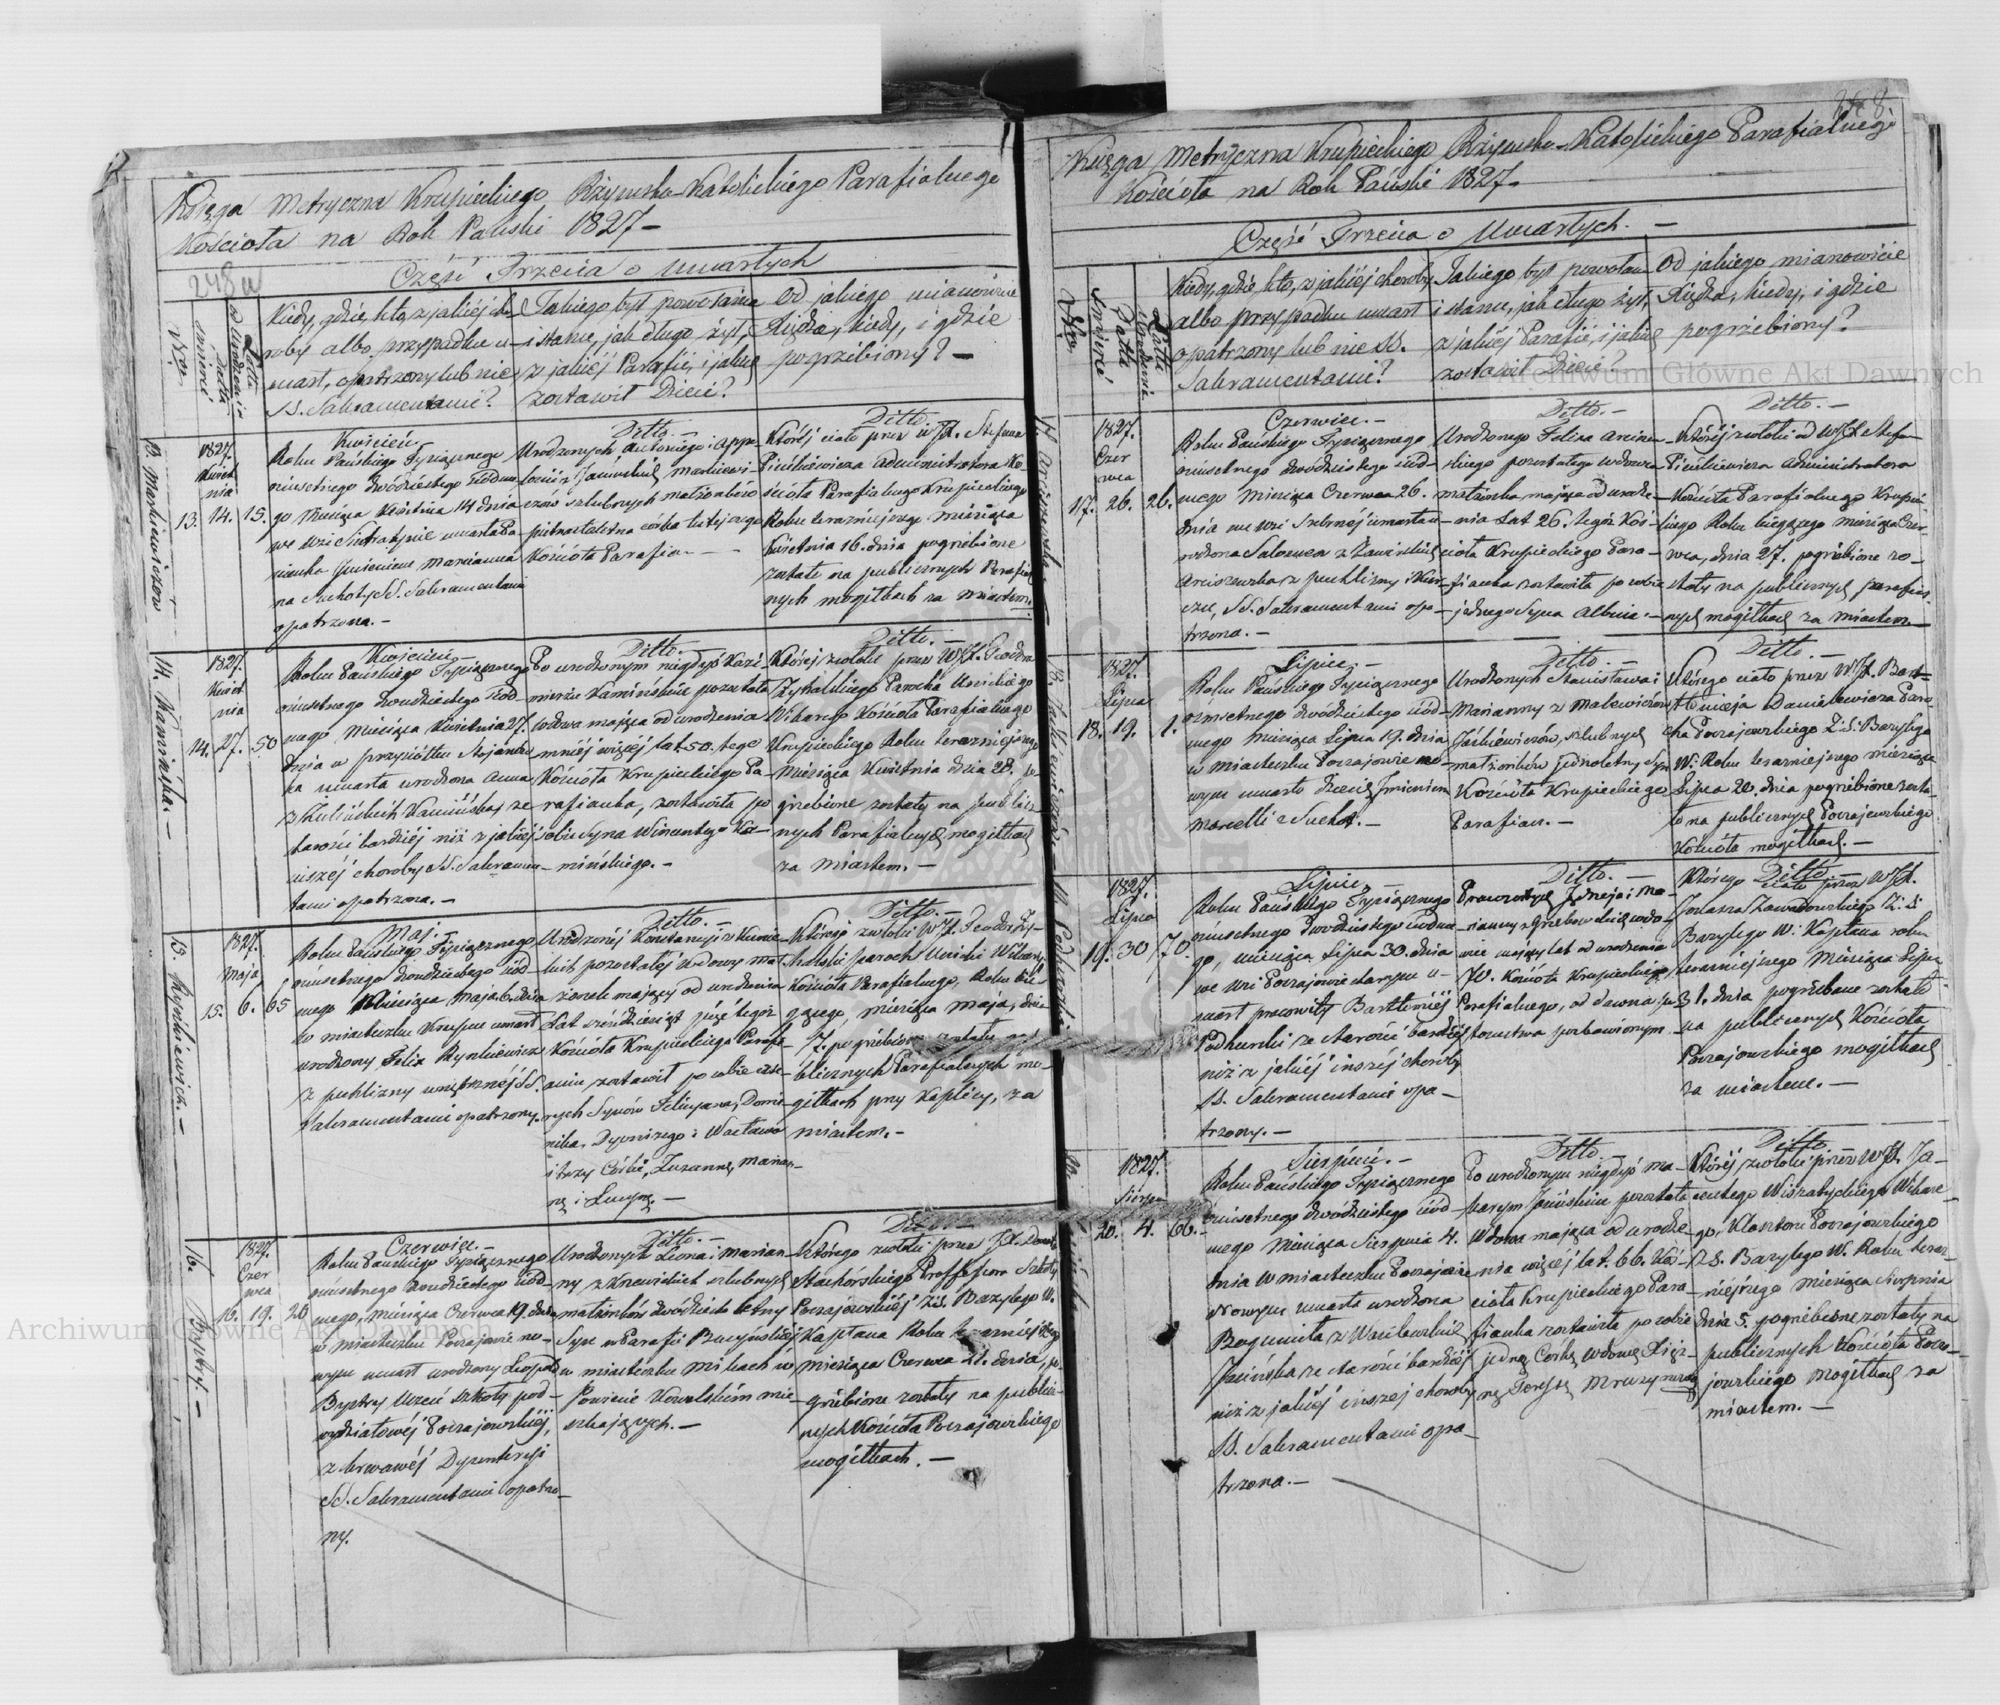 Księga Metryczna Krupieckiego Rzymsko-Katolickiego Parafialnego
Kościoła na Rok Pański 1827 –
248
Część Trzecia o Umarłych
Nro.
Data śmierci
Data urodzenia
Kiedy, gdzie, kto, z jakiéj cho-
roby albo przypadku u-
marł, opatrzony lub nie
SS. Sakramentami?
Jakiego był powołania
i stanu, jak długo żył,
z jakiéj Parafii, i jakie
zostawił Dzieci?
Od jakiego mianowicie
Xiędza, kiedy, i gdzie
pogrzebiony? –
13. Markiewiczów
1827.
Kwiet
nia
13. 14. 15.
Kwiecień
Roku Pańskiego Tysiącznego
ośmsetnego dwódziestego siódme
go Miesiąca Kwietnia 14 dnia
we wsi umarła Pa-
nienka Imieniem Marianna
na Suchoty SS. Sakramentami
opatrzona. –
Ditto. –
Urodzonych Antoniego i Appo-
lonii z Markiewi-
czów szlubnych małżonków
piętnastoletnia córka tutejszego
Kościoła Parafian – –
Ditto. –
Któréj ciało przez WJX. Stefana
Pieńkiewicza Administratora Ko-
ścioła Parafialnego Krupieckiego
Roku teraźniejszego miesiąca
Kwietnia 16. dnia pogrzebione
zostało na publicznych Parafial
nych mogiłkach za miastem.
14. Kamińska. –
1827.
Kwiet
nia
14. 27. 50
Kwiecień –
Roku Pańskiego Tysiącznego
ośmsetnego dwudziestego siód-
mego Miesiąca Kwietnia 27.
dnia w przysiółku
ka umarła urodzona Anna
z Kamińska ze
starości bardziéj niż z jakiéj
inszéj choroby SS. Sakramen-
tami opatrzona. –
Ditto. –
Po urodzonym niegdyś Kazi-
mierzu Kamińskim pozostała
wdowa mająca od urodzenia
mniéj więcéj lat 50. tego
Kościoła Krupieckiego Pa-
rafianka, zostawiła po
sobie Syna Wincentego Ka-
mińskiego. –
Ditto. –
Któréj zwłoki przez WJX. Teodora
Zychalskiego Parocha Unickiego
Wikarego Kościoła Parafialnego
Krupieckiego Roku teraźniejszego
Miesiąca Kwietnia dnia 28. po-
grzebione zostały na publicz
nych Parafialnych mogiłkach
za miastem. –
15. Rynkiewicz. –
1827.
Maja
15. 6. 65
Maj. –
Roku Pańskiego Tysiącznego
ośmsetnego dwudziestego siód-
mego Miesiąca Maja 6. dnia
w miasteczku Krupcu umarł
urodzony Felix Rynkiewicz
z puchlizny wnętrznéj SS.
Sakramentami opatrzony.
Ditto. –
Urodzonéj Konstancyi z
pozostałéj wdowy mał-
żonek mający od urodzenia
lat sześćdziesiąt pięć tegoż
Kościoła Krupieckiego Parafi-
anin zostawił po sobie czte-
rych Synów Felicyana, Domi-
nika, Dyonizego i Wacława
i trzy Córki, Zuzannę, Marian-
nę i Lucynę. –
Ditto. –
Którego zwłoki WJX. Teodor Zy-
chalski Paroch Unicki Wikary
Kościoła Parafialnego, Roku bie-
żącego, miesiąca Maja, dnia
7. pogrzebione zostały na pu-
blicznych Parafialnych mo-
giłkach przy Kaplicy, za
miastem. –
16. Bystry. –
1827.
Czer
wca
16. 19. 20
Czerwiec. –
Roku Pańskiego Tysiącznego
ośmsetnego dwudziestego siód-
mego, Miesiąca Czerwca 19. dnia
w miasteczku Poczajowie no-
wym umarł urodzony Leopold
Bystry Uczeń szkoły pod-
wydziałowéj Poczajowskiéj,
z krwawéj Dysenteryi
SS. Sakramentami opatrzo-
ny.
Ditto. –
Urodzonych Leona i Marian-
ny z szlubnych
małżonków dwódziesto letny
Syn w Parafii
w miasteczku w
Powiecie Kowelskim mie-
szkających. –
Ditto. –
Którego zwłoki przez JX.
Professora Szkoły
Poczajowskiéj Z.S. Bazylego W.
Kapłana Roku teraźniejszego
miesiąca Czerwca 21. dnia, po-
grzebione zostały na publicz-
nych Kościoła Poczajowskiego
mogiłkach. –
248.
Księga Metryczna Krupieckiego Rzymsko-Katolickiego Parafialnego
Kościoła na Rok Pański 1827.
Część Trzecia o Umarłych. –
Nro.
Data śmierci
Data urodzenia
Kiedy, gdzie, kto, z jakiéj choroby
albo przypadku umarł
opatrzony lub nie SS.
Sakramentami?
Jakiego był powołania
i stanu, jak długo żył,
z jakiéj Parafii, i jakie
zostawił Dzieci?
Od jakiego mianowicie
Xiędza, kiedy, i gdzie
pogrzebiony?
17. Arciszewska –
1827.
Czer
wca
17. 26. 26.
Czerwiec. –
Roku Pańskiego Tysiącznego
ośmsetnego dwódziestego siód-
mego Miesiąca Czerwca 26.
dnia we wsi umarła u-
rodzona Salomea z
Arciszewska z puchlizny i
SS. Sakramentami opa-
trzona. –
Ditto. –
Urodzonego Felixa Arcisze-
skiego pozostałego wdowca
małżonka mająca od urodze-
nia lat 26. tegóż Koś-
cioła Krupieckiego Para-
fianka zostawiła po sobie
jednego Syna Albina. –
Ditto. –
Któréj zwłoki od WJX. Stefa-
Pieńkiewicza Administratora
Kościoła Parafialnego Krupiec-
kiego Roku bieżącego miesiąca Czer-
wca, dnia 27. pogrzebione zo-
stały na publicznych parafial-
nych mogiłkach za miastem –
18. Jaśkiewiczów
1827.
Lipca
18. 19. 1.
Lipiec. –
Roku Pańskiego Tysiącznego
ośmsetnego dwódziestego siód-
mego Miesiąca Lipca 19. dnia
w miasteczku Poczajowie no-
wym umarło dziecię Imieniem
Marcelli z Suchot. –
Ditto. –
Urodzonych Stanisława i
Marianny z Malewiczów
Jaśkiewiczów, szlubnych
małżonków jednoletny Syn
Kościoła Krupieckiego
Parafian. –
Ditto. –
Którego ciało przez WJX. Bart-
łomieja Danilewicza Paro-
cha Poczajowskiego Z.S. Bazylego
W. Roku teraźniejszego miesiąca
Lipca 20. dnia pogrzebione zosta-
ło na publicznych Poczajowskiego
Kościoła mogiłkach. –
19. Podhurski
1827.
Lipca
19. 30 70.
Lipiec –
Roku Pańskiego Tysiącznego
ośmsetnego dwudziestego siódme-
go, miesiąca Lipca 30. dnia
we wsi Poczajowie starym u-
marł pracowity Bartłomiéj
Podhurski ze starości bardziéj
niż z jakiéj inszéj choroby
SS. Sakramentami opa-
trzony. –
Ditto. –
Pracowitych i Ma-
rianny z
wic mający lat od urodzenia
70. Kościoła Krupieckiego
Parafialnego, od dawna
pozbawionym
Ditto
Którego ciało przez WJX.
Zawadowskiego Z.S.
Bazylego W. Kapłana roku
teraźniejszego Miesiąca Lipca
31. dnia pogrzebane zostało
na publicznych Kościoła
Poczajowskiego mogiłkach
za miastem. –
1827.
Sierpn
20. 4. 66.
Sierpień. –
Roku Pańskiego Tysiącznego
ośmsetnego dwódziestego siód-
mego Miesiąca Sierpnia 4.
dnia w miasteczku Poczajowie
Nowym umarła urodzona
Bogumiła z
ze starości bardziéj
niż z jakiéj inszej choroby
SS. Sakramentami opa-
trzona. –
Ditto. –
Po urodzonym niegdyś Ma-
pozostała
Wdowa mająca od urodze-
nia więcéj lat. 66. Koś-
cioła Krupieckiego Para-
fianka zostawiła po sobie
jedną Córkę Wdowę
Teressę
Ditto
Któréj zwłoki przez WJX. Ja-
centego Wikare-
go, Klasztoru Poczajowskiego
Z.S. Bazylego W. Roku teraz-
niéjszego Miesiąca Sierpnia
dnia 5. pogrzebione zostały na
publicznych Kościoła Pocza-
jowskiego mogiłkach za
miastem. –
Archiwum Główne Akt Dawnych
Archiwum Główne Akt Dawnych